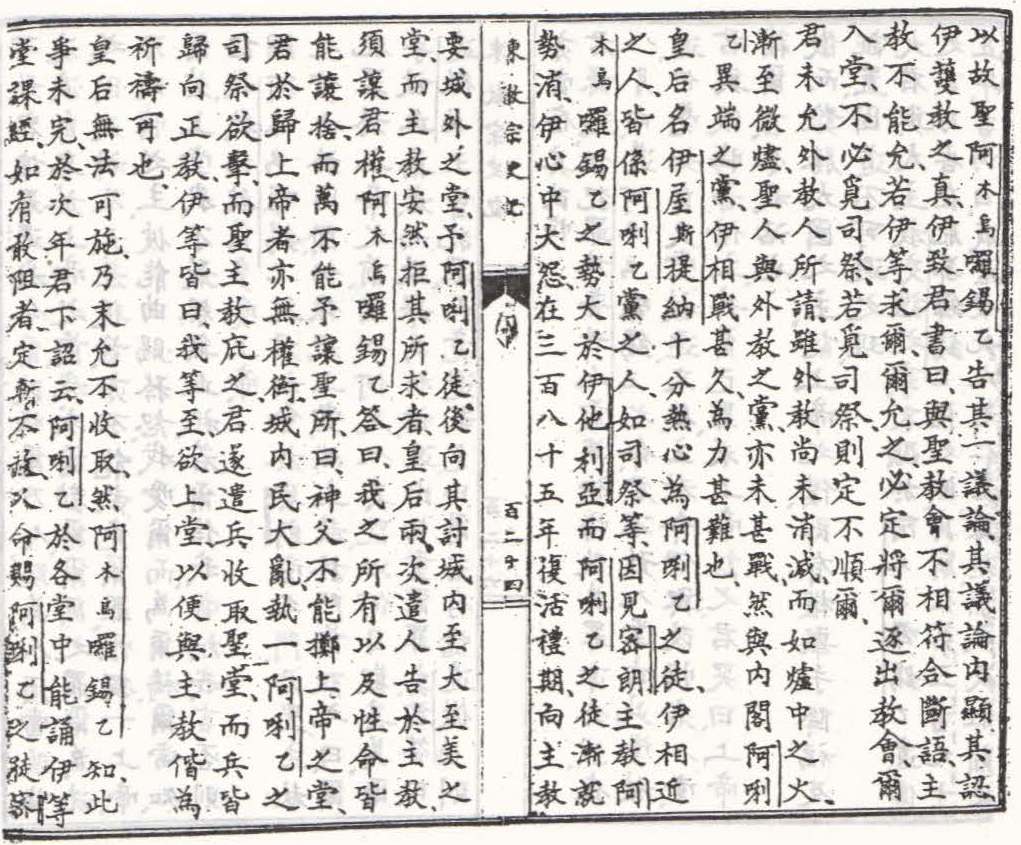 以故聖阿木烏囉錫乙告其一議論其議論內顯其認
伊護教之真伊致君書曰與聖教會不相符合斷語主
教不能允若伊等求爾爾允之必定將爾逐出教會爾
入堂不必覓司祭若覓司祭則定不順爾
君未允外教人所請雖外教尚未消滅而如爐中之火
漸至微燼聖人與外教之黨亦未甚戰然與內閣阿唎
乙異端之黨伊相戰甚久為力甚難也
皇后名伊屋斯提納十分熱心為阿唎乙之徒伊相近
之人皆係阿唎乙黨之人如司祭等因見密朗主教阿
木烏囉錫乙之勢大於伊他利亞而阿唎乙之徒漸就
勢消伊心中大怨在三百八十五年復活禮期向主教
東教宗史記
百二十四
要城外之堂予阿唎乙徒後向其討城內至大至美之
堂而主教安然拒其所求者皇后兩次遣人告於主教
須讓君權阿木烏囉錫乙答曰我之所有以及性命皆
能讓捨而萬不能予讓聖所曰神父不能擲上帝之堂
君於歸上帝者亦無權衙城內民大亂執一阿唎乙之
司祭欲擊而聖主教庇之君遂遣兵收取聖堂而兵皆
歸向正教伊等皆曰我等至欲上堂以便與主教偕為
祈禱可也
皇后無法可施乃末允不收取然阿木烏囉錫乙知此
爭未完於次年君下詔云阿唎乙於各堂中能誦伊等
堂課經如有敢阻者定暫不赦又命賜阿唎乙之徒